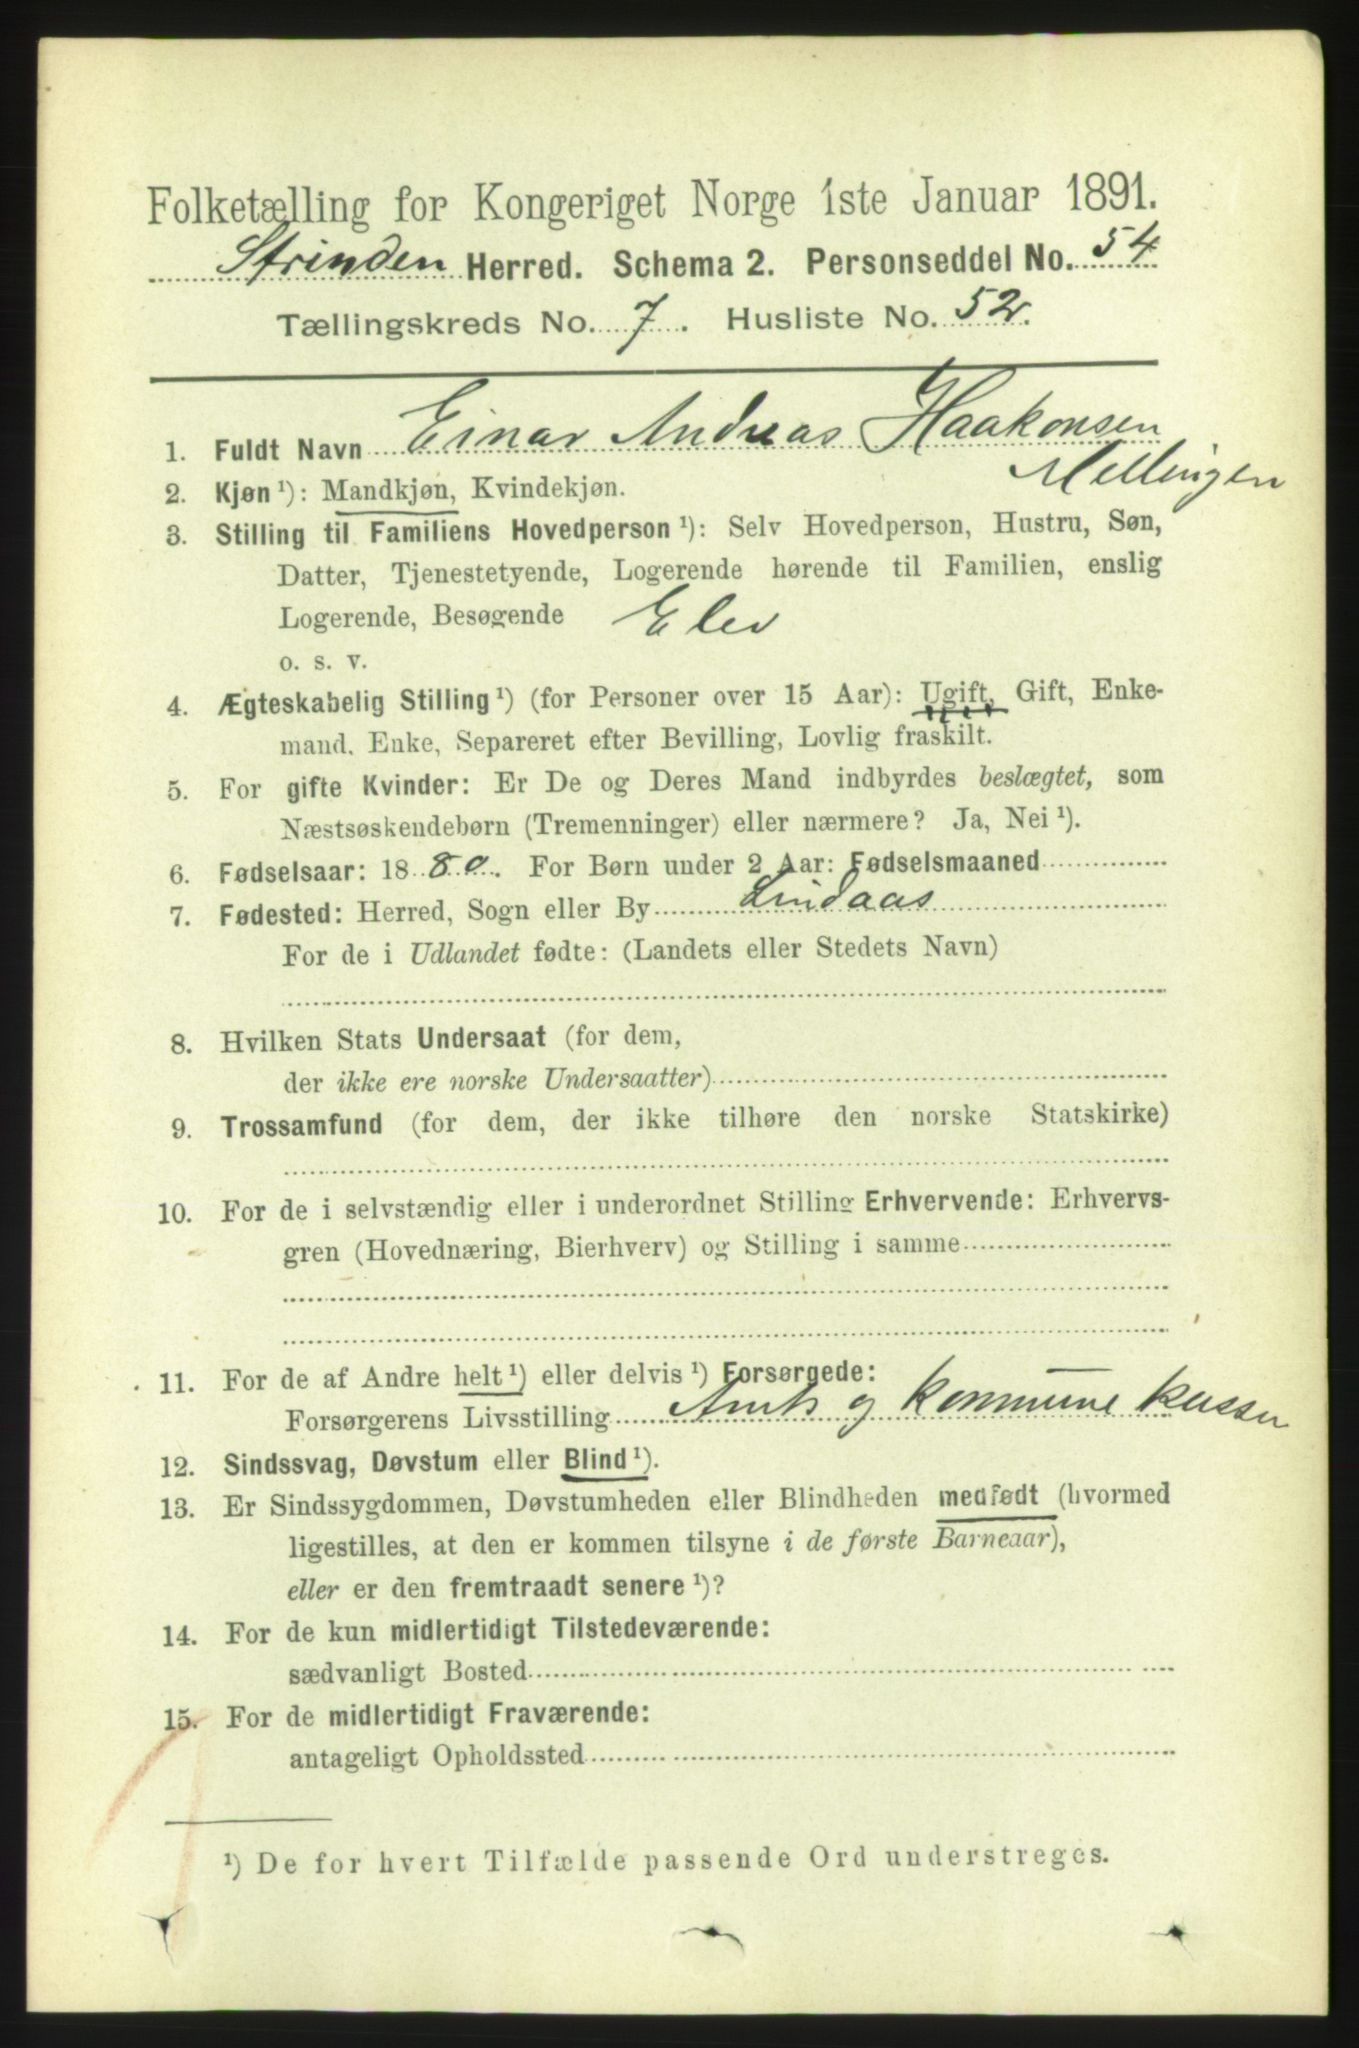 Folketælling for Kongeriget Norge 1ste Januar 1891.
Strinden Herred. Schema 2. Personseddel No. 54
Tællingskreds No. 7. Husliste No. 52.
1. Fuldt Navn Einar Andreas Haakonsen
Mellingen
2. Kjøn ¹): Mandkjøn, Kvindekjøn.
3. Stilling til Familiens Hovedperson ¹): Selv Hovedperson, Hustru, Søn,
Datter, Tjenestetyende, Logerende hørende til Familien, enslig
Logerende, Besøgende Elev
o. s. v.
4. Ægteskabelig Stilling ¹) (for Personer over 15 Aar): Ugift, Gift, Enke-
mand, Enke, Separeret efter Bevilling, Lovlig fraskilt.
5. For gifte Kvinder: Er De og Deres Mand indbyrdes beslægtet, som
Næstsøskendebørn (Tremenninger) eller nærmere? Ja, Nei ¹).
6. Fødselsaar: 1880. For Børn under 2 Aar: Fødselsmaaned
7. Fødested: Herred, Sogn eller By Lindaas
For de i Udlandet fødte: (Landets eller Stedets Navn)
8. Hvilken Stats Undersaat (for dem,
der ikke ere norske Undersaatter)
9. Trossamfund (for dem, der ikke tilhøre den norske Statskirke)
10. For de i selvstændig eller i underordnet Stilling Erhvervende: Erhvervs-
gren (Hovednæring, Bierhverv) og Stilling i samme
11. For de af Andre helt ¹) eller delvis ¹) Forsørgede:
Forsørgerens Livsstilling Amts og kommune kasser
12. Sindssvag, Døvstum eller Blind ¹).
13. Er Sindssygdommen, Døvstumheden eller Blindheden medfødt (hvormed
ligestilles, at den er kommen tilsyne i de første Barneaar),
eller er den fremtraadt senere ¹)?
14. For de kun midlertidigt Tilstedeværende:
sædvanligt Bosted
15. For de midlertidigt Fraværende:
antageligt Opholdssted
¹) De for hvert Tilfælde passende Ord understreges.